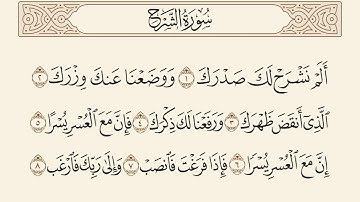 سُورَةُ الشَّرْحِ
أَلَمْ نَشْرَحْ لَكَ صَدْرَكَ ١ وَوَضَعْنَا عَنكَ وِزْرَكَ ٢
ٱلَّذِىٓ أَنقَضَ ظَهْرَكَ ٣ وَرَفَعْنَا لَكَ ذِكْرَكَ ٤ فَإِنَّ مَعَ ٱلْعُسْرِ يُسْرًا ٥
إِنَّ مَعَ ٱلْعُسْرِ يُسْرًا ٦ فَإِذَا فَرَغْتَ فَٱنصَبْ ٧ وَإِلَىٰ رَبِّكَ فَٱرْغَب ٨